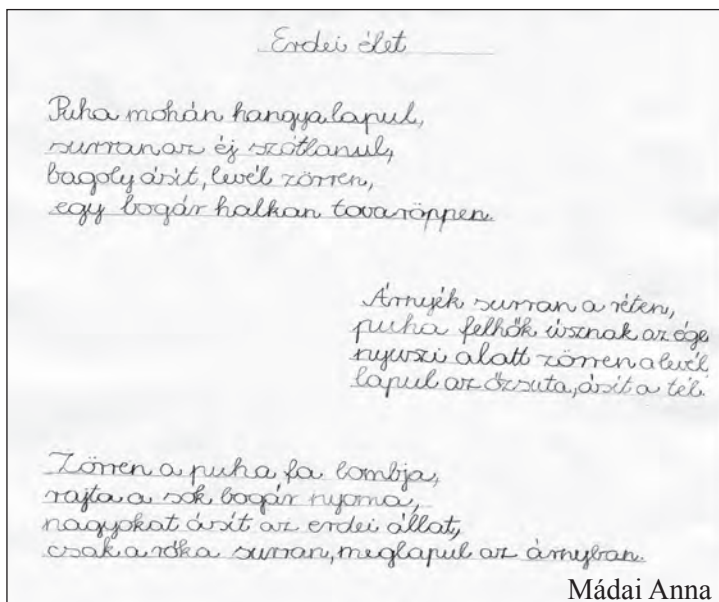 Erdei élet
Puha mohán hangya lapul,
surran az éj szótlanul,
bagoly ásít, levél zörren,
egy bogár halkan tovaröppen.
Árnyék surran a réten,
puha felhők úsznak az ége
nyuszi alatt zörren a levél
lapul az őzsuta, ásít a tél.
Zörren a puha fa lombja,
rajta a sok bogár nyoma,
nagyokat ásít az erdei állat,
csak a róka surran, meglapul az árnyban.
Mádai Anna